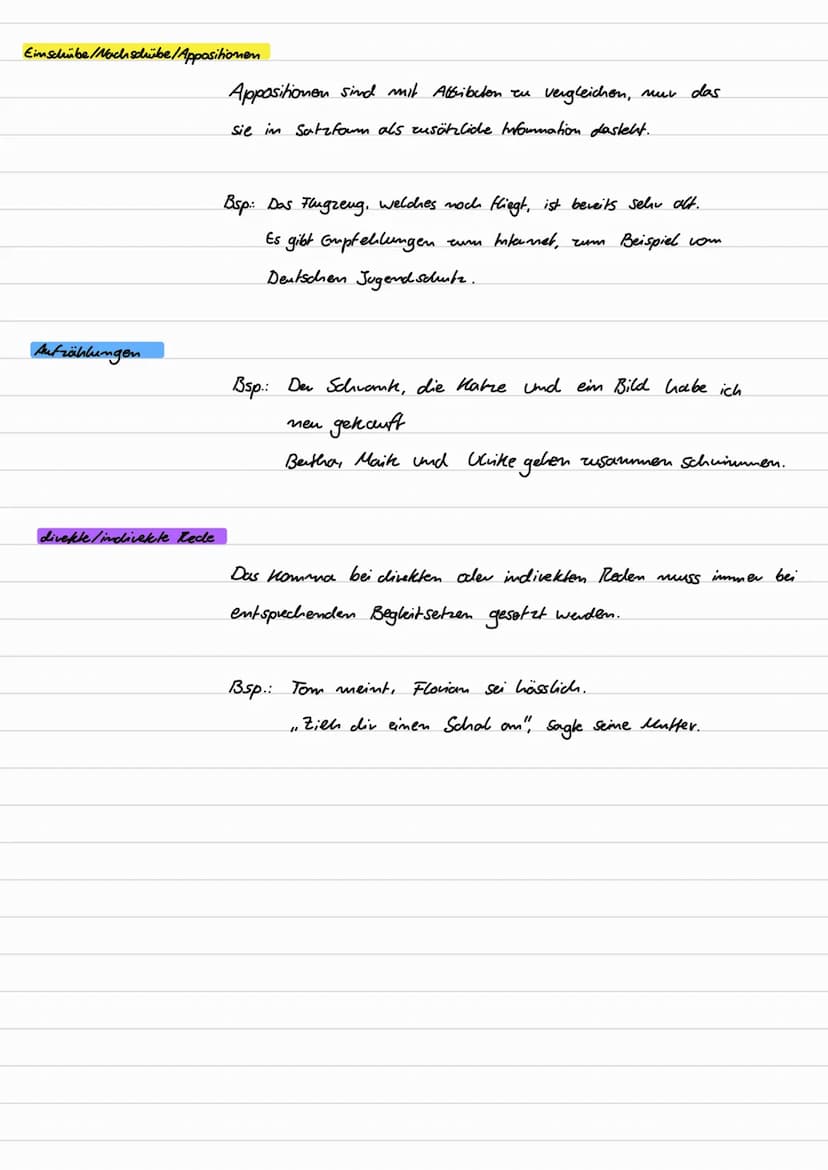 Einschübe/Nachschübe/Appositionen
Appositionen sind mit Attributen zu vergleichen, nur das
sie in Satzform als zusätzliche Information dasteht.
Bsp.: Das Flugzeug, welches noch fliegt, ist bereits sehr alt.
Es gibt Empfehlungen zum Internet, zum Beispiel vom
Deutschen Jugendschutz.
Aufzählungen
Bsp.: Den Schrank, die Katze und ein Bild habe ich
neu gekauft
Bertha, Maik und Ulrike gehen zusammen schwimmen.
direkte/indirekte Rede
Das Komma bei direkten oder indirekten Reden muss immer bei
entsprechenden Begleitsetzen gesetzt werden.
Bsp.: Tom meint, Florian sei hässlich.
„Zieh dir einen Schal an", sagte seine Mutter.